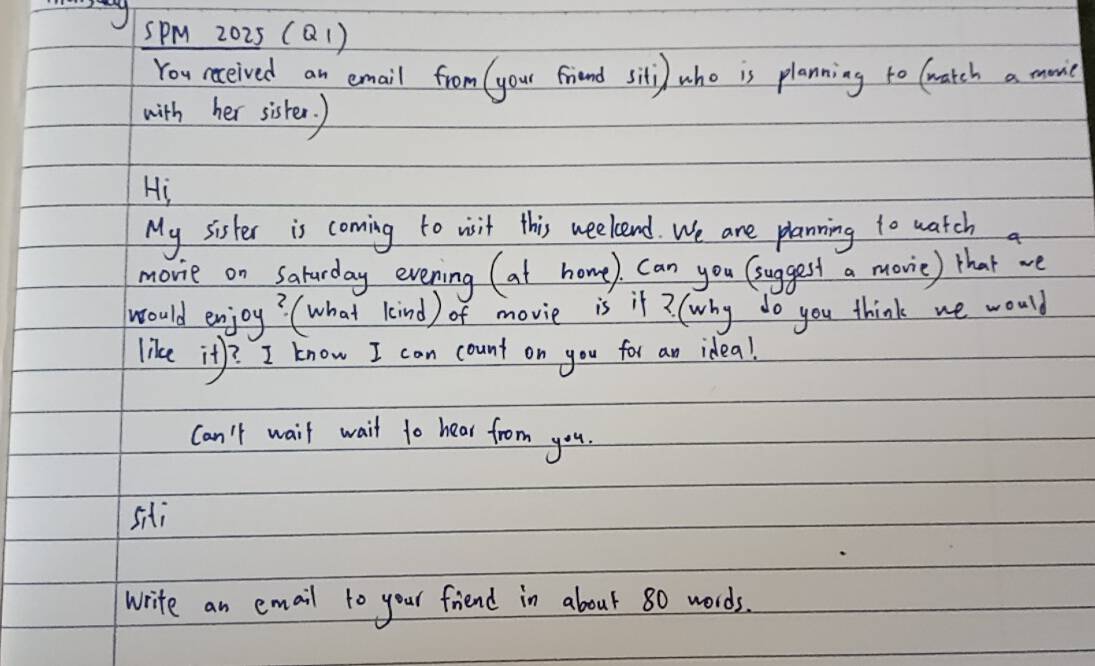 SPM 2025 (Q1)
You received an email from (your friend siti) who is planning to (watch a movie
with her sister.)
Hi,
My sister is coming to visit this weekend. We are planning to watch a
movie on saturday evening (at home). Can you (suggest a movie) that we
would enjoy? (what kind) of movie is it? (why do you think we would
like it)? I know I can count on you for an idea!
Can't wait wait to hear from you.
Siti
Write an email to your friend in about 80 words.